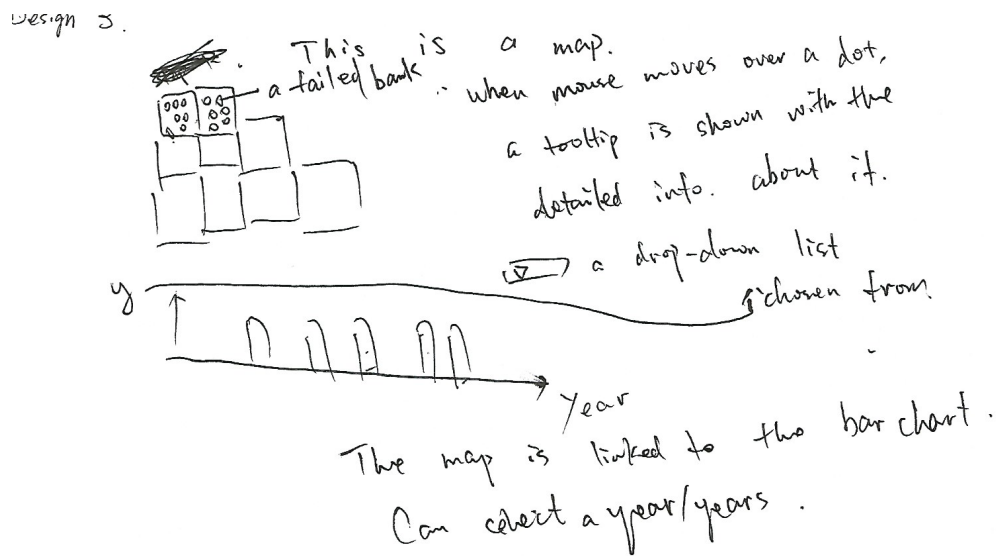 Design 3.
This is a map.
a failed bank
when mouse moves over a dot,
a tooltip is shown with the
detailed info. about it.
a drop-down list
y
chosen from.
Year
The map is linked to the bar chart.
Can select a year/years.